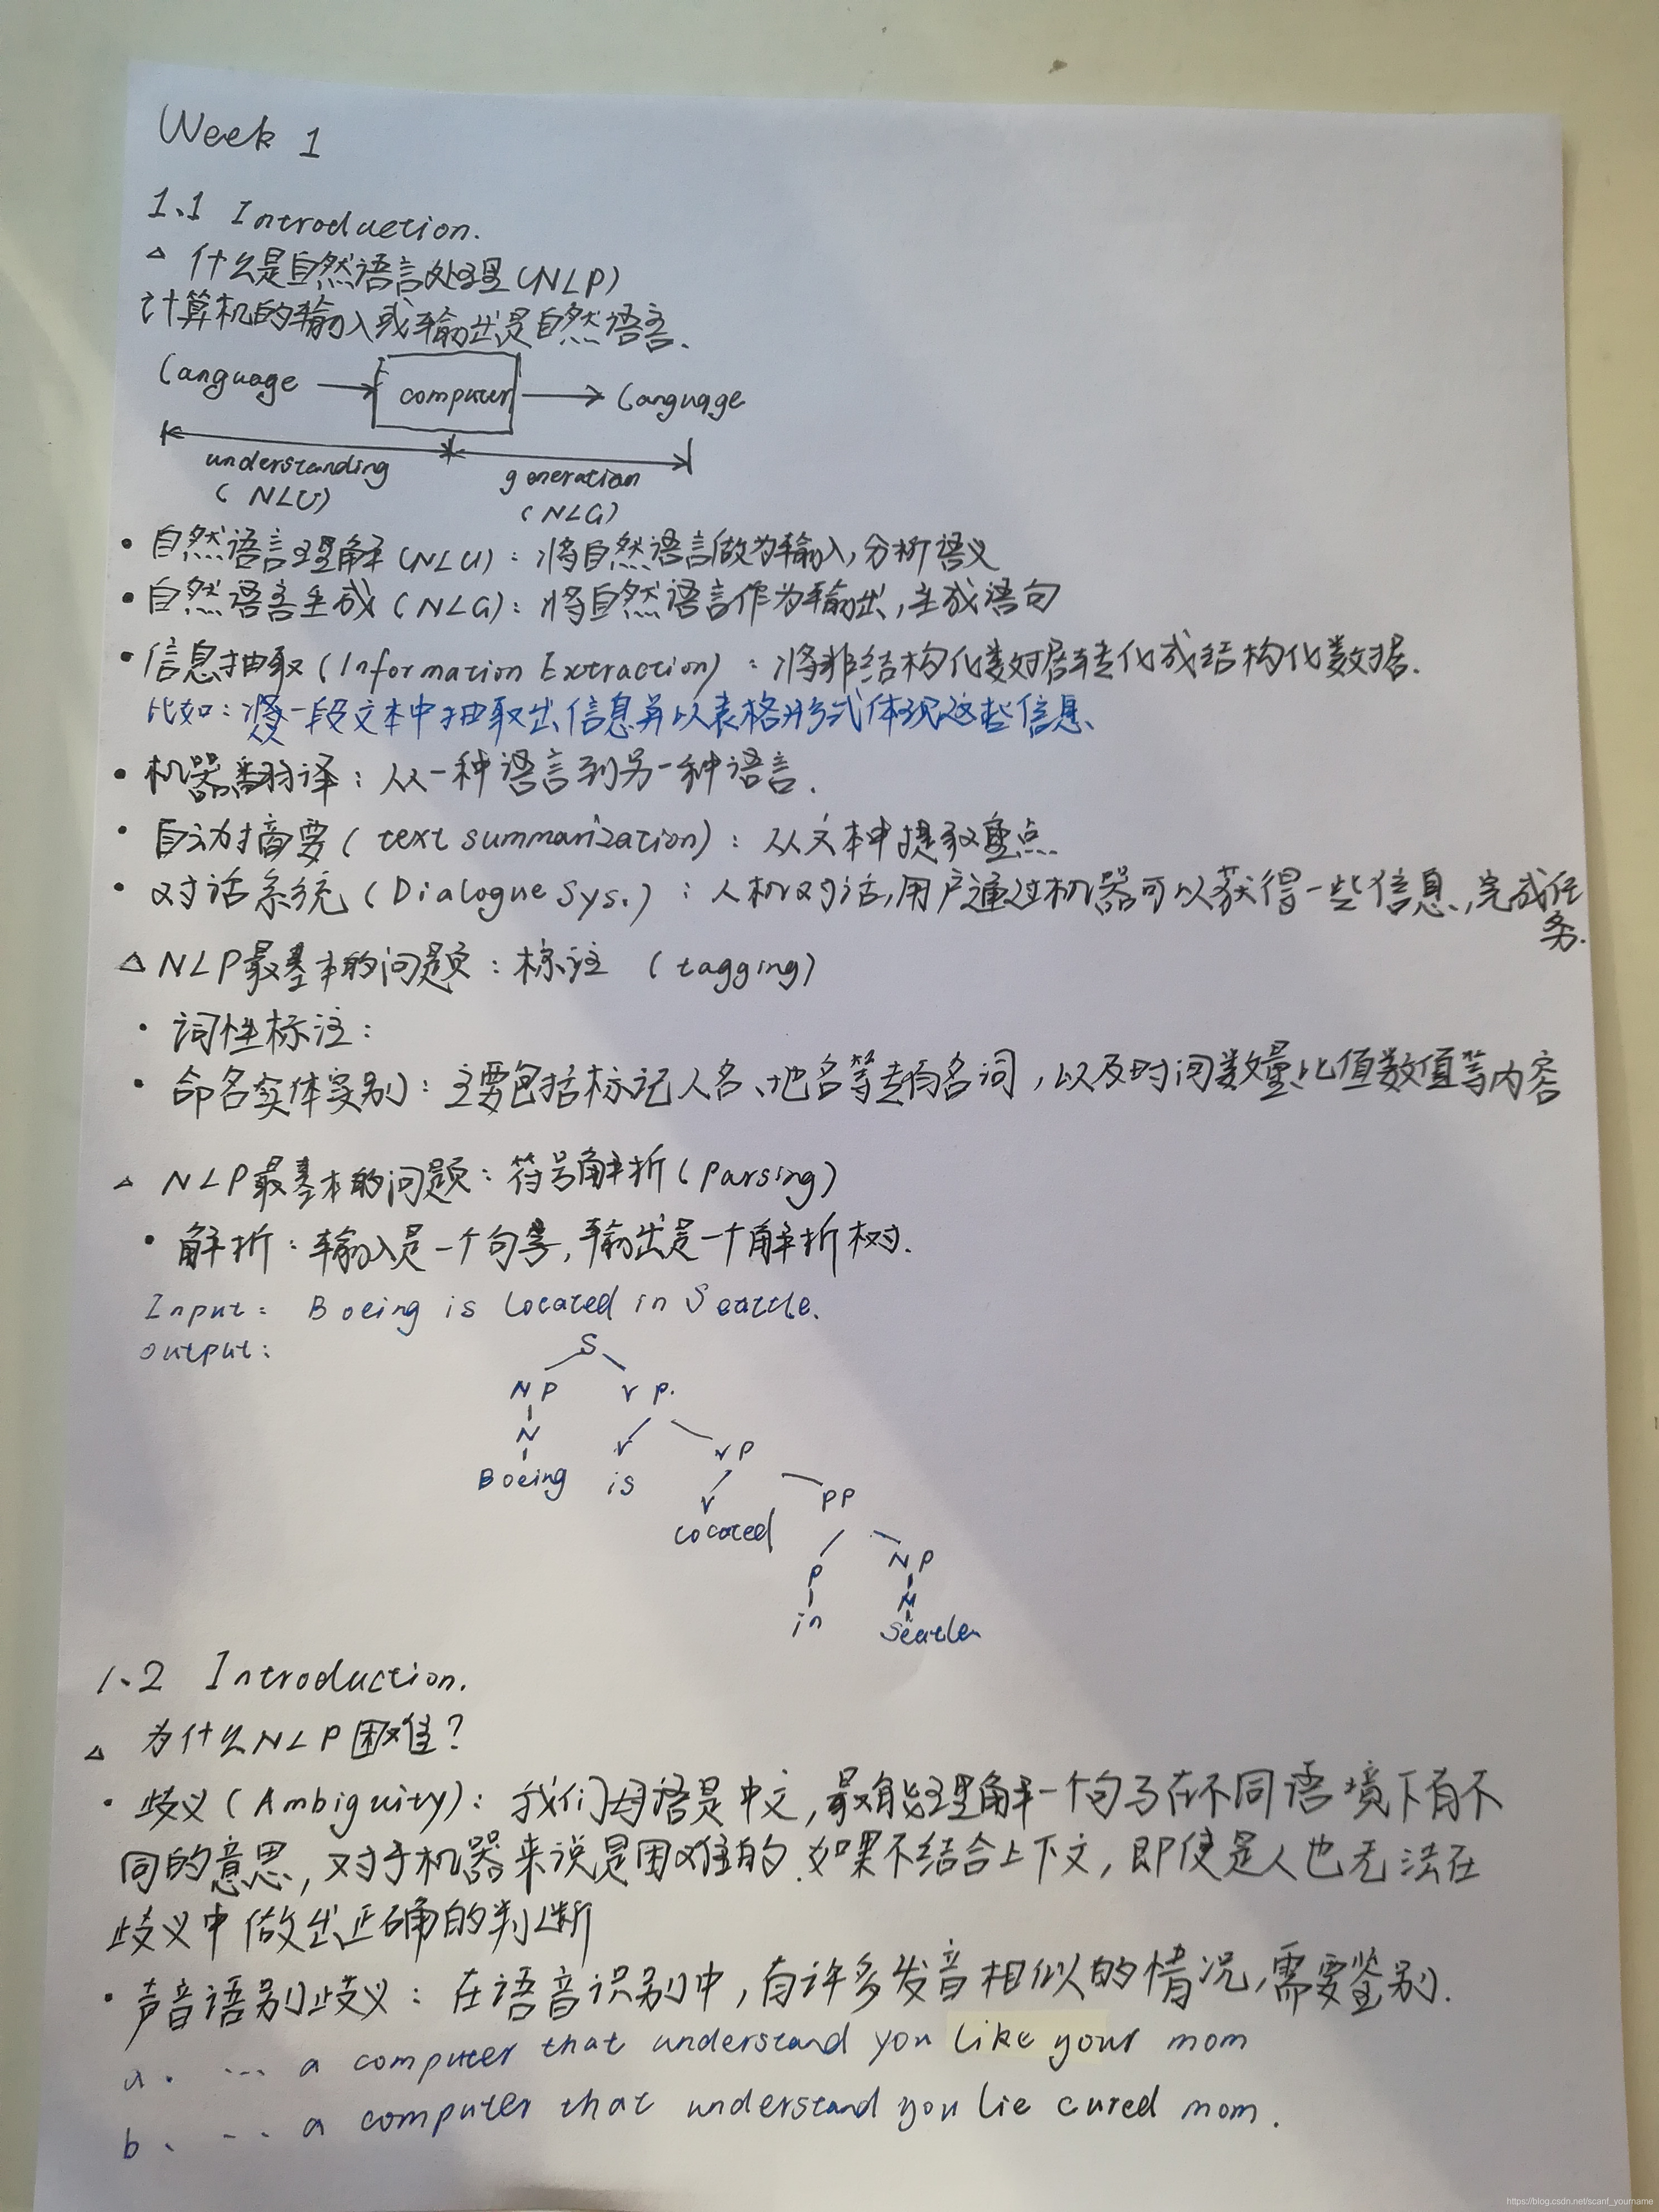 Week 1
1.1 Introduction.
△ 什么是自然语言处理(NLP)
计算机的输入或输出是自然语言、
Language → computer → Language
understanding generation
(NLU) (NLG)
• 自然语言理解(NLU)：将自然语言做为输入,分析语义
• 自然语言生成(NLG)：将自然语言作为输出,生成语句
• 信息抽取(Information Extraction)：将非结构化数据转化成结构化数据.
比如：将一段文本中抽取出信息并以表格形式体现这些信息、
• 机器翻译：从一种语言到另一种语言.
• 自动摘要(text summarization)：从文本中提取重点
• 对话系统(Dialogue Sys.)：人机对话,用户通过机器可以获得一些信息,完成任
务.
△ NLP最基本的问题：标注 (tagging)
• 词性标注：
• 命名实体实别：主要包括标记人名、地名等专有名词,以及时间数量比值数值等内容
△ NLP最基本的问题：符号解析(Parsing)
• 解析：输入是一个句子,输出是一个解析树.
Input: Boeing is located in Seattle.
output:
S
NP VP.
N V VP
Boeing is
V PP
located
P NP
in N
Seattle
1.2 Introduction.
△ 为什么NLP困难?
• 歧义(Ambiguity)：我们母语是中文,最能理解一个句子在不同语境下有不
同的意思,对于机器来说是困难的.如果不结合上下文,即使是人也无法在
歧义中做出正确的判断
• 声音语别歧义：在语音识别中,有许多发音相似的情况,需要鉴别.
a. ... a computer that understand you like your mom
b、... a computer that understand you lie cured mom.
https://blog.csdn.net/scanf_yourname